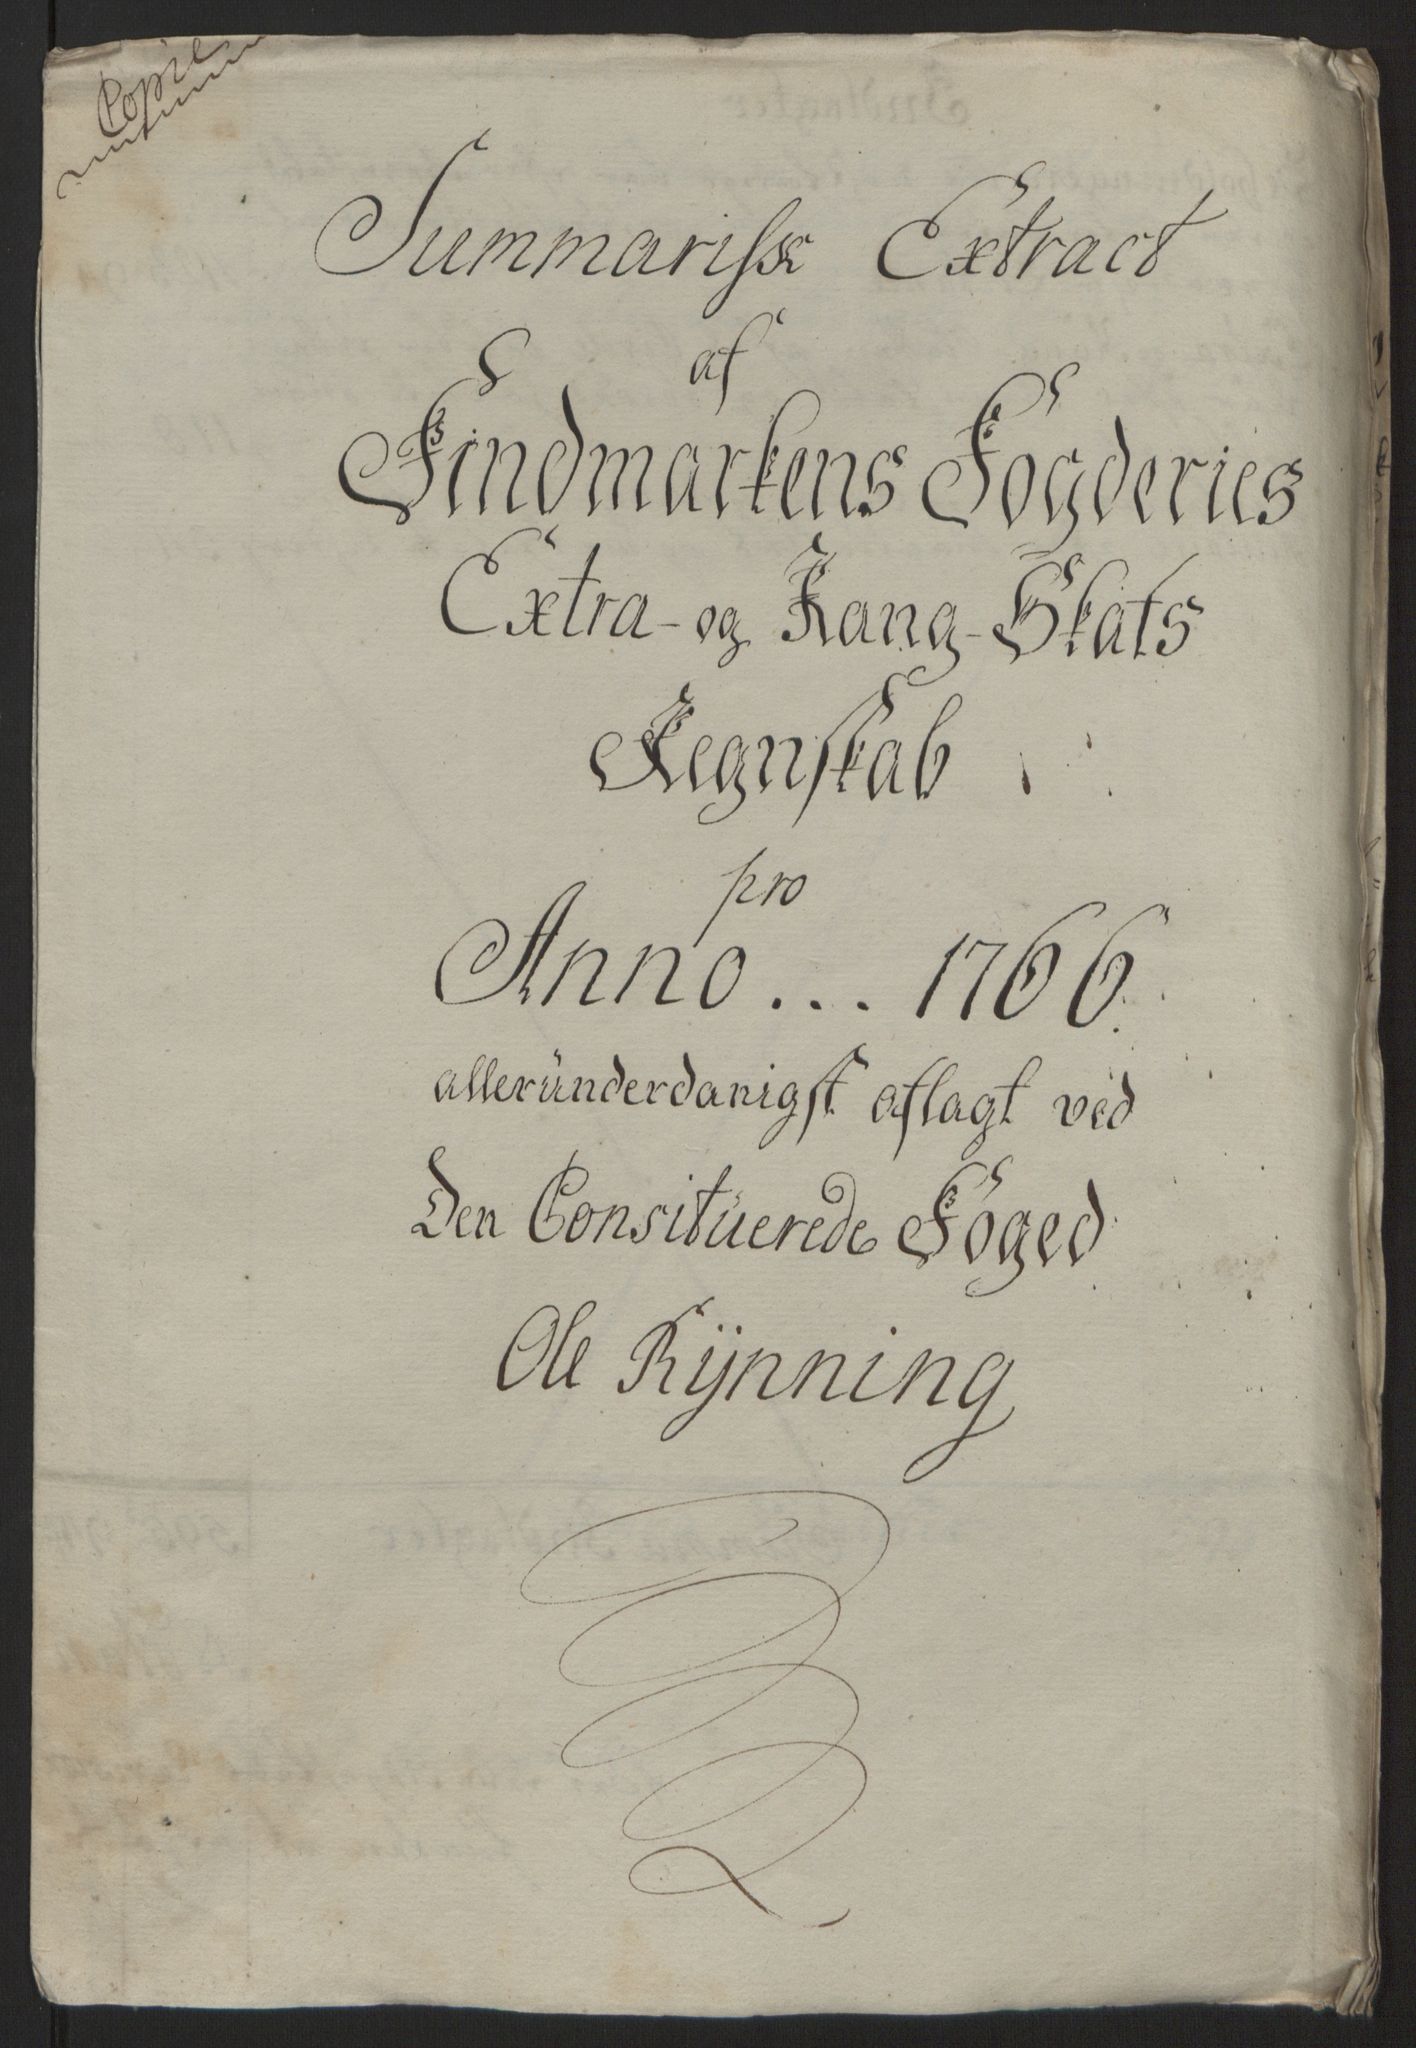 Copie
Summariske Extract
af
Findmarkens Fogderies
Extra- og Rang-Skats
Regnskab
pro
Anno ... 1766
alleründerdanigst aflagt ved
Den Consitüerede Foged
Ole Rÿnning